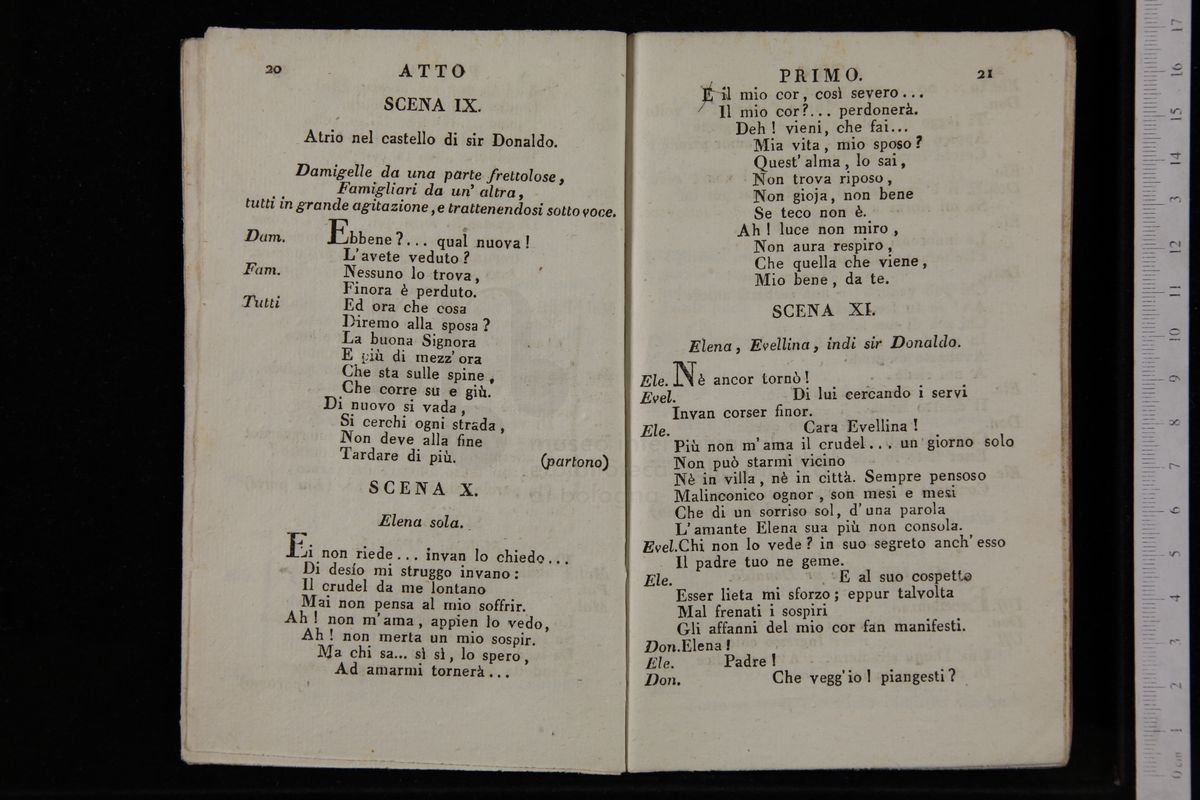 20
ATTO
SCENA IX.
Atrio nel castello di sir Donaldo.
Damigelle da una parte frettolose,
Famigliari da un' altra,
tutti in grande agitazione, e trattenendosi sotto voce.
Dam. Ebbene?... qual nuova!
L'avete veduto?
Fam. Nessuno lo trova,
Finora è perduto.
Tutti Ed ora che cosa
Diremo alla sposa?
La buona Signora
E più di mezz' ora
Che sta sulle spine,
Che corre su e giù.
Di nuovo si vada,
Si cerchi ogni strada,
Non deve alla fine
Tardare di più. (partono)
SCENA X.
Elena sola.
Ei non riede... invan lo chiedo...
Di desío mi struggo invano:
Il crudel da me lontano
Mai non pensa al mio soffrir.
Ah! non m'ama, appien lo vedo,
Ah! non merta un mio sospir.
Ma chi sa... sì sì, lo spero,
Ad amarmi tornerà...
PRIMO.
21
E il mio cor, così severo...
Il mio cor?... perdonerà.
Deh! vieni, che fai...
Mia vita, mio sposo?
Quest' alma, lo sai,
Non trova riposo,
Non gioja, non bene
Se teco non è.
Ah! luce non miro,
Non aura respiro,
Che quella che viene,
Mio bene, da te.
SCENA XI.
Elena, Evellina, indi sir Donaldo.
Ele. Nè ancor tornò!
Evel. Di lui cercando i servi
Invan corser finor.
Ele. Cara Evellina!
Più non m'ama il crudel... un giorno solo
Non può starmi vicino
Nè in villa, nè in città. Sempre pensoso
Malinconico ognor, son mesi e mesi
Che di un sorriso sol, d'una parola
L'amante Elena sua più non consola.
Evel. Chi non lo vede? in suo segreto anch' esso
Il padre tuo ne geme.
Ele. E al suo cospetto
Esser lieta mi sforzo; eppur talvolta
Mal frenati i sospiri
Gli affanni del mio cor fan manifesti.
Don. Elena!
Ele. Padre!
Don. Che vegg'io! piangesti?
0 cm 1 2 3 4 5 6 7 8 9 10 11 12 13 14 15 16 17